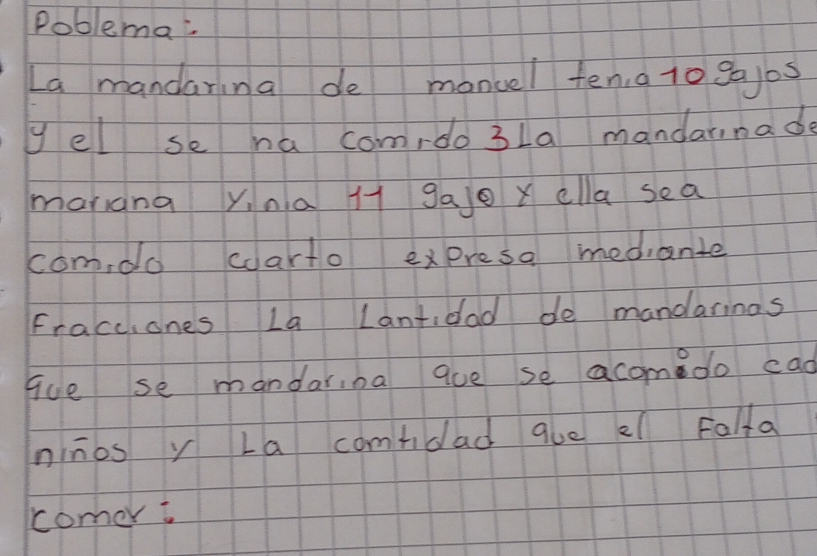 Poblema:
La mandarina de manuel tenia 10 gajos
y el se ha comido 3 La mandarina de
mariana vinia 11 gajo y ella sea
comido cuarto expresa mediante
Fracciones La Lantidad de mandarinas
que se mandarina que se acomido cad
niños y La comtidad que el Falta
comer: